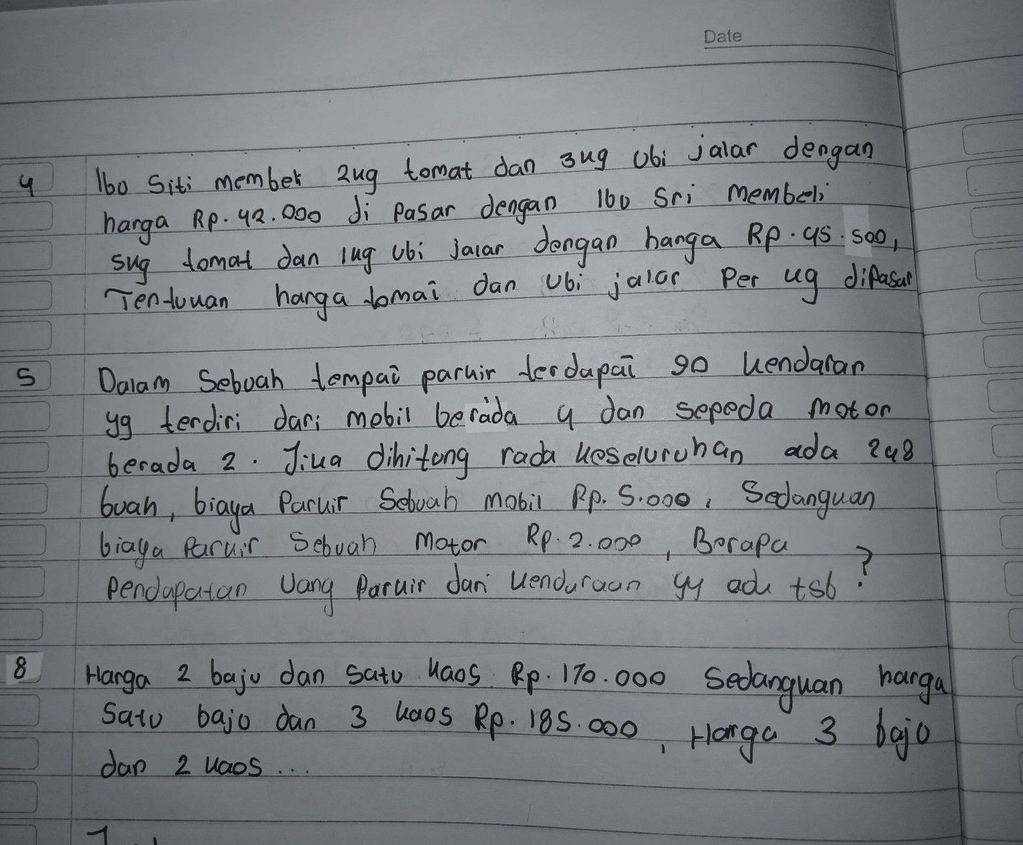 Date
4 Ibu Siti membeli 2kg tomat dan 3kg ubi jalar dengan
harga Rp. 42.000 di Pasar dengan Ibu Sri Membeli
5kg tomat dan 1kg ubi jalar dengan harga Rp. 45.500,
Tentukan harga tomat dan ubi jalar Per kg dipasar
5 Dalam Sebuah tempat parkir terdapat 90 kendaran
yg terdiri dari mobil berada 4 dan sepeda motor
berada 2. Jika dihitung roda keseluruhan ada 248
buah, biaya Parkir Sebuah mobil Rp. 5.000, Sedangkan
biaya Parkir Sebuah Motor Rp. 2.000, Berapa
Pendapatan Uang Parkir dari kendaraan yg ada tsb?
8 Harga 2 baju dan Satu kaos Rp. 170.000 Sedangkan harga
Satu baju dan 3 kaos Rp. 185.000, Harga 3 baju
dan 2 kaos ...